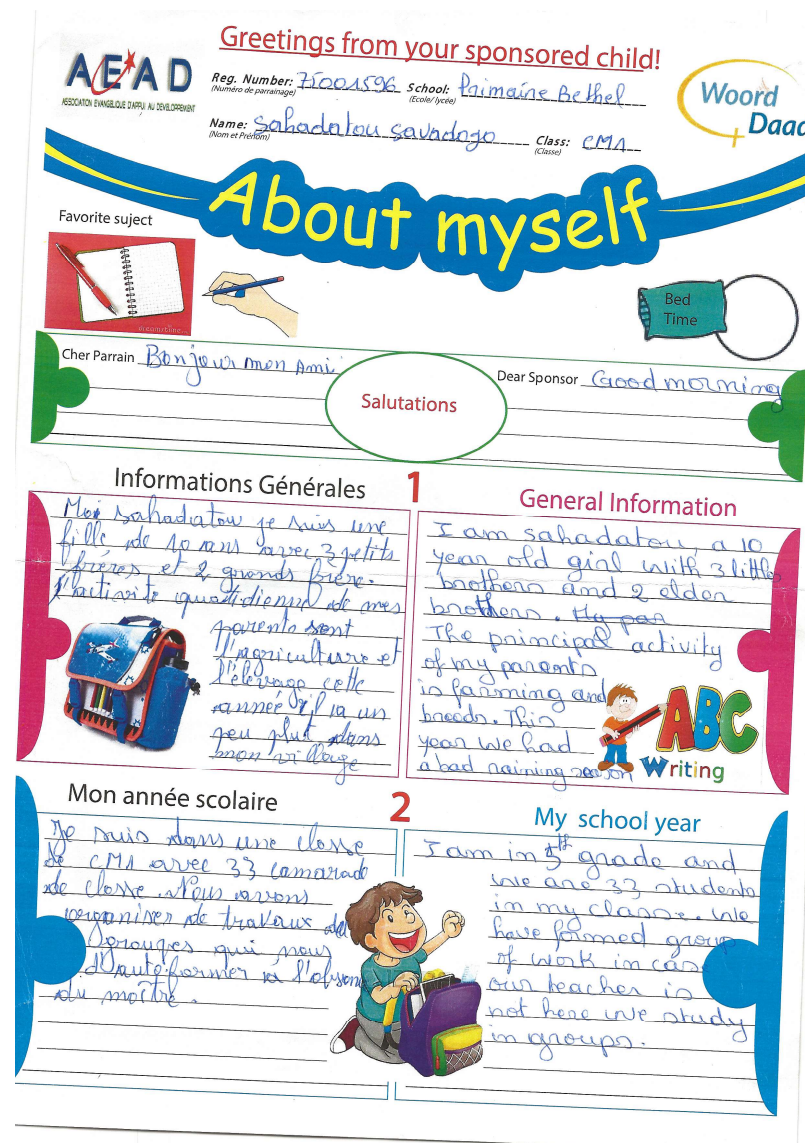 Greetings from your sponsored child!
AEAD
ASSOCIATION EVANGELIQUE D'APPUI AU DEVELOPPEMENT
Reg. Number: 75001596 School: Primaire Bethel
(Numéro de parrainage) (Ecole/ lycée)
Name: Sahadatou Savadogo Class: CM1
(Nom et Prénom) (Classe)
Woord
Daad
About myself
Favorite suject
dreamstime
Bed
Time
Cher Parrain Bonjour mon Ami
Salutations
Dear Sponsor Good morning
Informations Générales
1
General Information
Moi sahadatou je suis une
fille de 10 ans avec 3 petits
frères et 2 grands frère.
l'activité quotidienne de mes
parents sont
l'agriculture et
l'élevage cette
année il a un
peu plut dans
mon village
I am sahadatou, a 10
year old girl with 3 little
brothers and 2 elder
brothers. My par
The principal activity
of my parents
is farming and
breeds. This
year we had
a bad raining season
ABC
Writing
Mon année scolaire
2
My school year
Je suis dans une classe
de CM1 avec 33 camarade
de classe. Nous avons
organiser de travaux de
groupes qui nous
d'auto-former à l'absence
du maître.
I am in 5th grade and
we are 33 students
in my classe. We
have formed group
of work in case
our teacher is
not here we study
in groups.